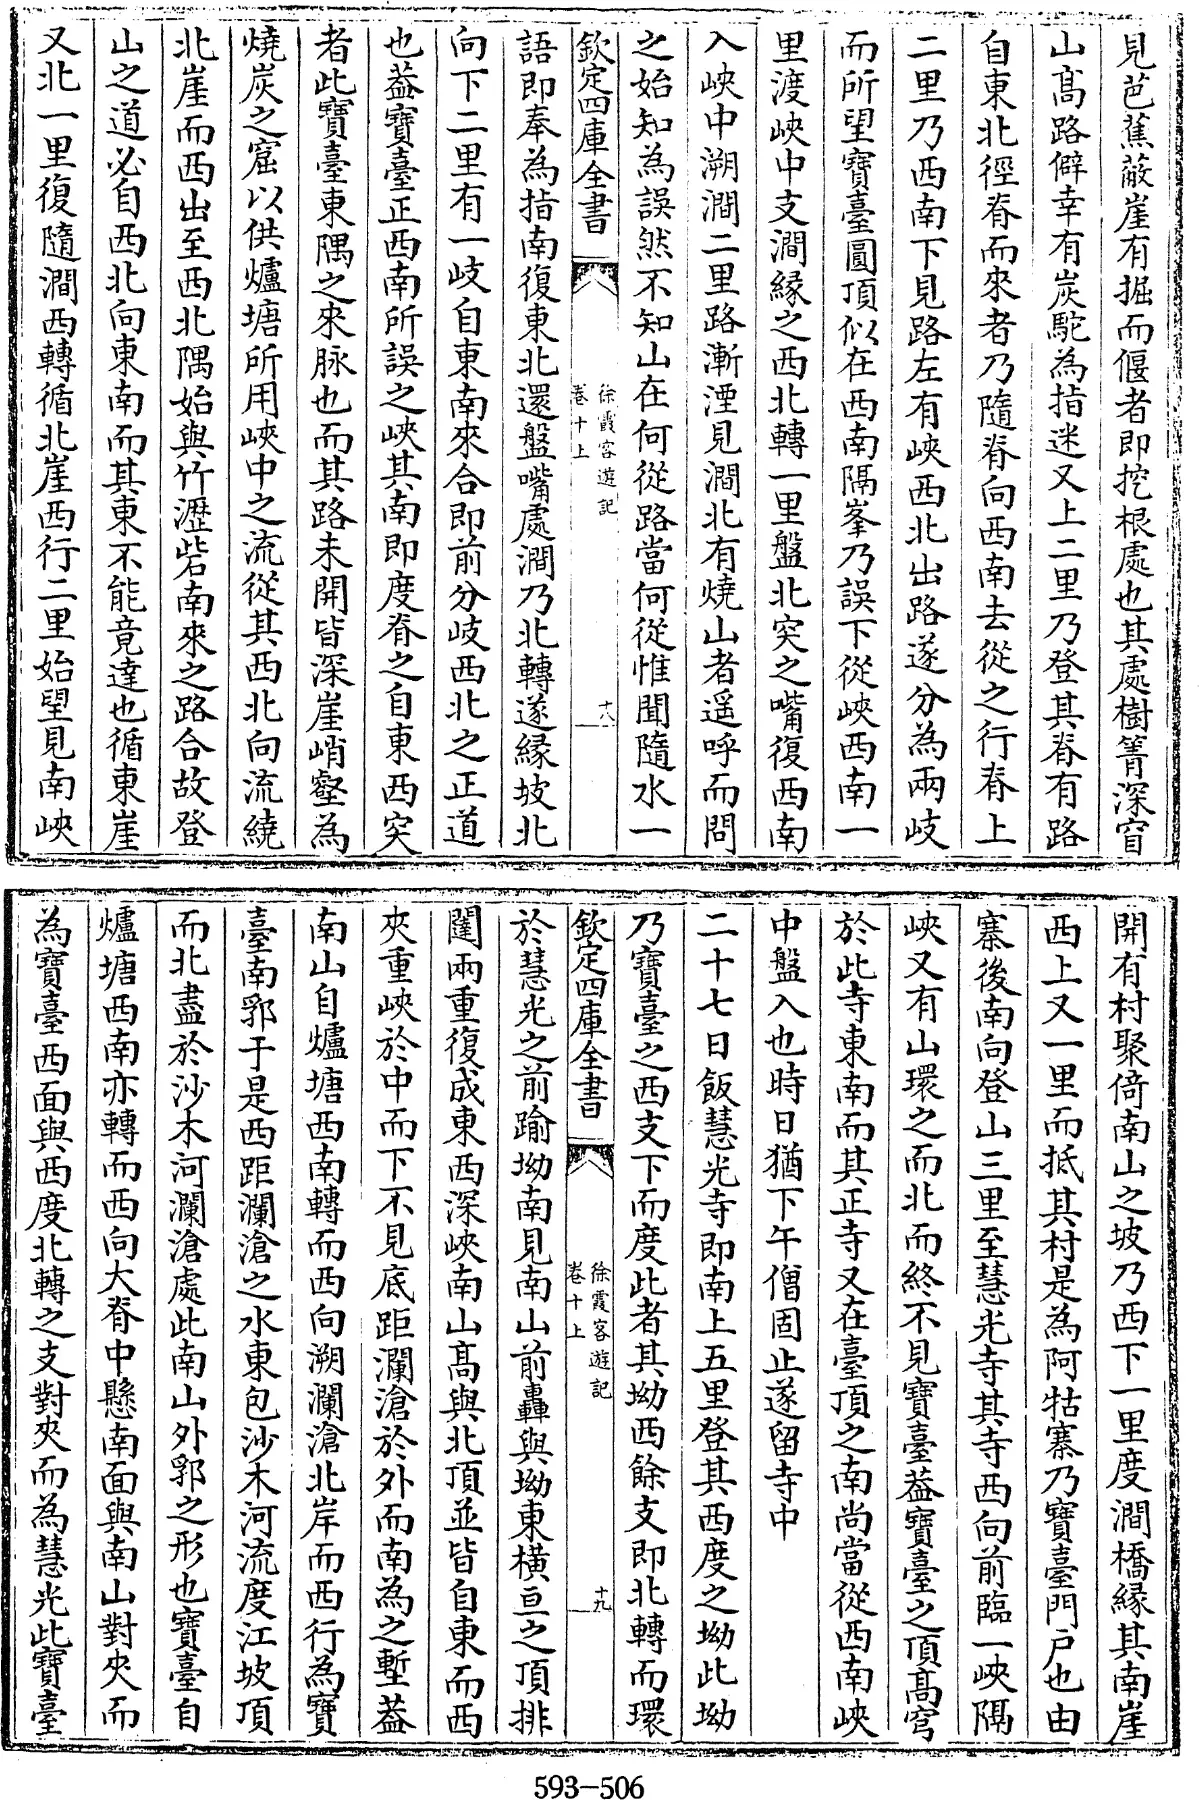 見芭蕉蔽崖有掘而偃者即挖根處也其處樹箐深窅
山髙路僻幸有炭駝為指迷又上二里乃登其脊有路
自東北徑脊而來者乃隨脊向西南去從之行脊上
二里乃西南下見路左有峽西北出路遂分為兩岐
而所望寶臺圓頂似在西南隔峯乃誤下從峽西南一
里渡峽中支澗縁之西北轉一里盤北突之嘴復西南
入峽中溯澗二里路漸湮見澗北有燒山者遥呼而問
之始知為誤然不知山在何從路當何從惟聞隨水一
欽定四庫全書
徐霞客遊記
卷十上
十八
語即奉為指南復東北還盤嘴處澗乃北轉遂縁坡北
向下二里有一岐自東南來合即前分岐西北之正道
也葢寶臺正西南所誤之峽其南即度脊之自東西突
者此寶臺東隅之來脉也而其路未開皆深崖峭壑為
燒炭之窟以供爐塘所用峽中之流從其西北向流繞
北崖而西出至西北隅始與竹瀝砦南來之路合故登
山之道必自西北向東南而其東不能竟達也循東崖
又北一里復隨澗西轉循北崖西行二里始望見南峽
開有村聚倚南山之坡乃西下一里度澗橋縁其南崖
西上又一里而抵其村是為阿牯寨乃寶臺門戶也由
寨後南向登山三里至慧光寺其寺西向前臨一峽隔
峽又有山環之而北而終不見寶臺葢寶臺之頂髙穹
於此寺東南而其正寺又在臺頂之南尚當從西南峽
中盤入也時日猶下午僧固止遂留寺中
二十七日飯慧光寺即南上五里登其西度之坳此坳
乃寶臺之西支下而度此者其坳西餘支即北轉而環
欽定四庫全書
徐霞客遊記
卷十上
十九
於慧光之前踰坳南見南山前轟與坳東橫亘之頂排
闥兩重復成東西深峽南山髙與北頂並皆自東而西
夾重峽於中而下不見底距瀾滄於外而南為之塹葢
南山自爐塘西南轉而西向溯瀾滄北岸而西行為寶
臺南郛于是西距瀾滄之水東包沙木河流度江坡頂
而北盡於沙木河瀾滄處此南山外郛之形也寶臺自
爐塘西南亦轉而西向大脊中懸南面與南山對夾而
為寶臺西面與西度北轉之支對夾而為慧光此寶臺
593-506